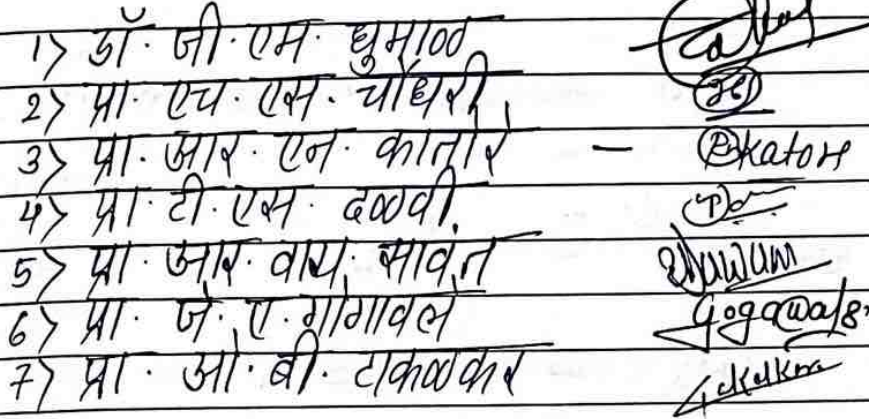 1> डॉ. जी. एम. धुमाळ
2> प्रा. एच. एस. चौधरी
3> प्रा. आर. एन. कातोरे - Rkatore
4> प्रा. टी. एस. दळवी.
5> प्रा. आर. वाय. सावंत
6> प्रा. जे. ए. गोगावले Gogawale
7> प्रा. ओ. बी. टाकळकर